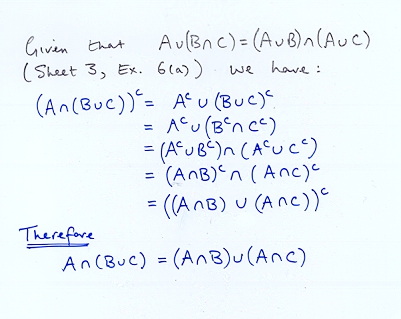 Given that A∪(B∩C)=(A∪B)∩(A∪C)
(Sheet 3, Ex. 6(a)) we have:
(A∩(B∪C))ᶜ = Aᶜ ∪ (B∪C)ᶜ
= Aᶜ∪(Bᶜ∩Cᶜ)
=(Aᶜ∪Bᶜ)∩(Aᶜ∪Cᶜ)
= (A∩B)ᶜ∩(A∩C)ᶜ
= ((A∩B) ∪ (A∩C))ᶜ
Therefore
A∩(B∪C) = (A∩B)∪(A∩C)